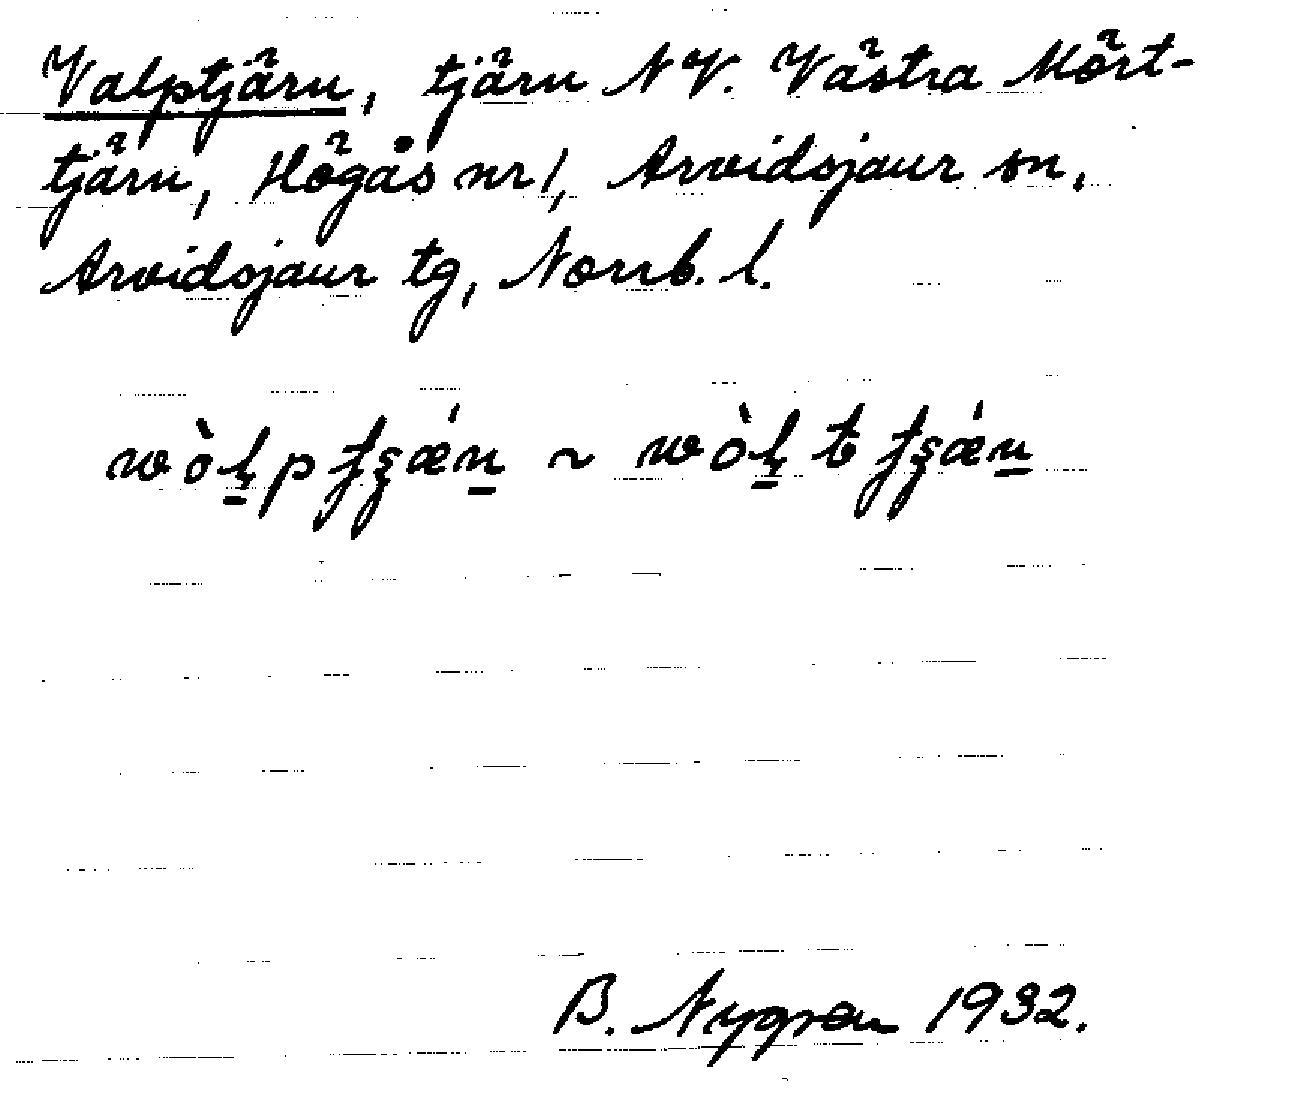 Valptjärn, tjärn NV. Västra Mört-
tjärn, Högås nr 1, Arvidsjaur sn,
Arvidsjaur tg, Norrb. l.
B. Nygren 1932.